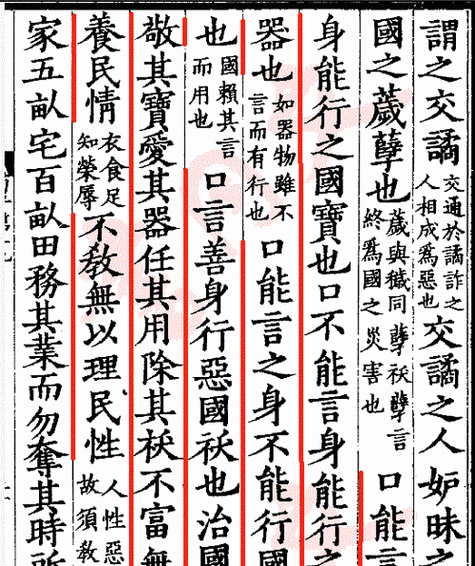 謂之交譎交通於譎詐之人相成爲惡也交譎之人妒昧之
國之薉孽也薉與穢同孽祅孽言終爲國之災害也口能言
身能行之國寶也口不能言身能行之
器也如器物雖不言而有行也口能言之身不能行國
也國賴其言而用也口言善身行惡國祅也治國
敬其寶愛其器任其用除其祅不富無
養民情衣食足知榮辱不敎無以理民性人性惡故須敎
家五畝宅百畝田務其業而勿奪其時所